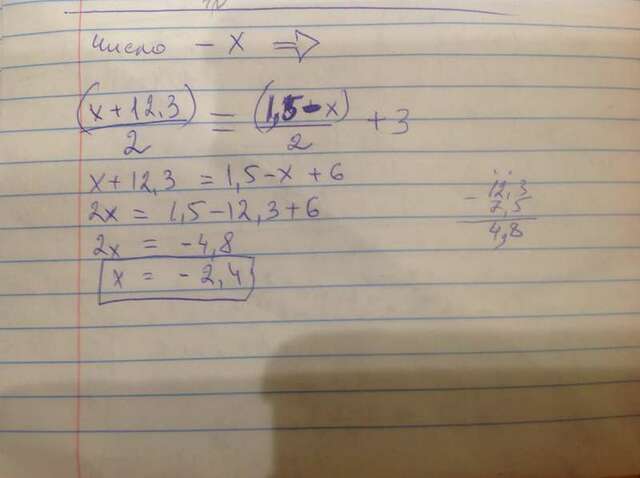 Число - x ⇒
(x + 12,3)/2 = (1,5 - x)/2 + 3
x + 12,3 = 1,5 - x + 6
2x = 1,5 - 12,3 + 6
2x = - 4,8
x = - 2,4
- 12,3
7,5
4,8